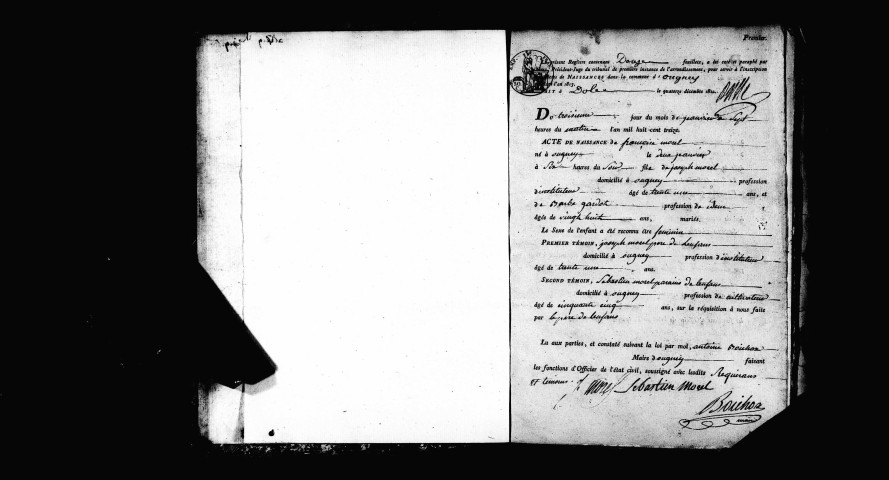 Premier.
présent Registre contenant Douze feuillets, a été coté et paraphé par
Président-Juge du tribunal de première instance de l'arrondissement, pour servir à l'inscription
de NAISSANCES dans la commune d'ougney
l'an 1813.
FAIT à Dole le quatorze décembre 1812.
Du troisieme jour du mois de janvier a sept
heures du matin l'an mil huit cent treize.
ACTE DE NAISSANCE de françoise morel
né à ougney le deux janvier
à six heures du soir fils de joseph morel
domicilié à ougney profession
d'instituteur âgé de trente un ans, et
de Barbe gardot profession de idem
âgée de vingt huit ans, mariés.
Le Sexe de l'enfant a été reconnu être feminin
PREMIER TÉMOIN, joseph morel pere de lenfans
domicilié à ougney profession d'instituteur
âgé de trente un ans.
SECOND TÉMOIN, Sebastien morel parain de lenfans
domicilié à ougney profession de cultivateur
âgé de cinquante cinq ans, sur la réquisition à nous faite
par le pere de lenfans
Lu aux parties, et constaté suivant la loi par moi, antoine Bouchoz
Maire d'ougney faisant
les fonctions d'Officier de l'état civil, soussigné avec lesdits Requerans
et temoins. J morel Sebastien morel
Bouchoz
maire